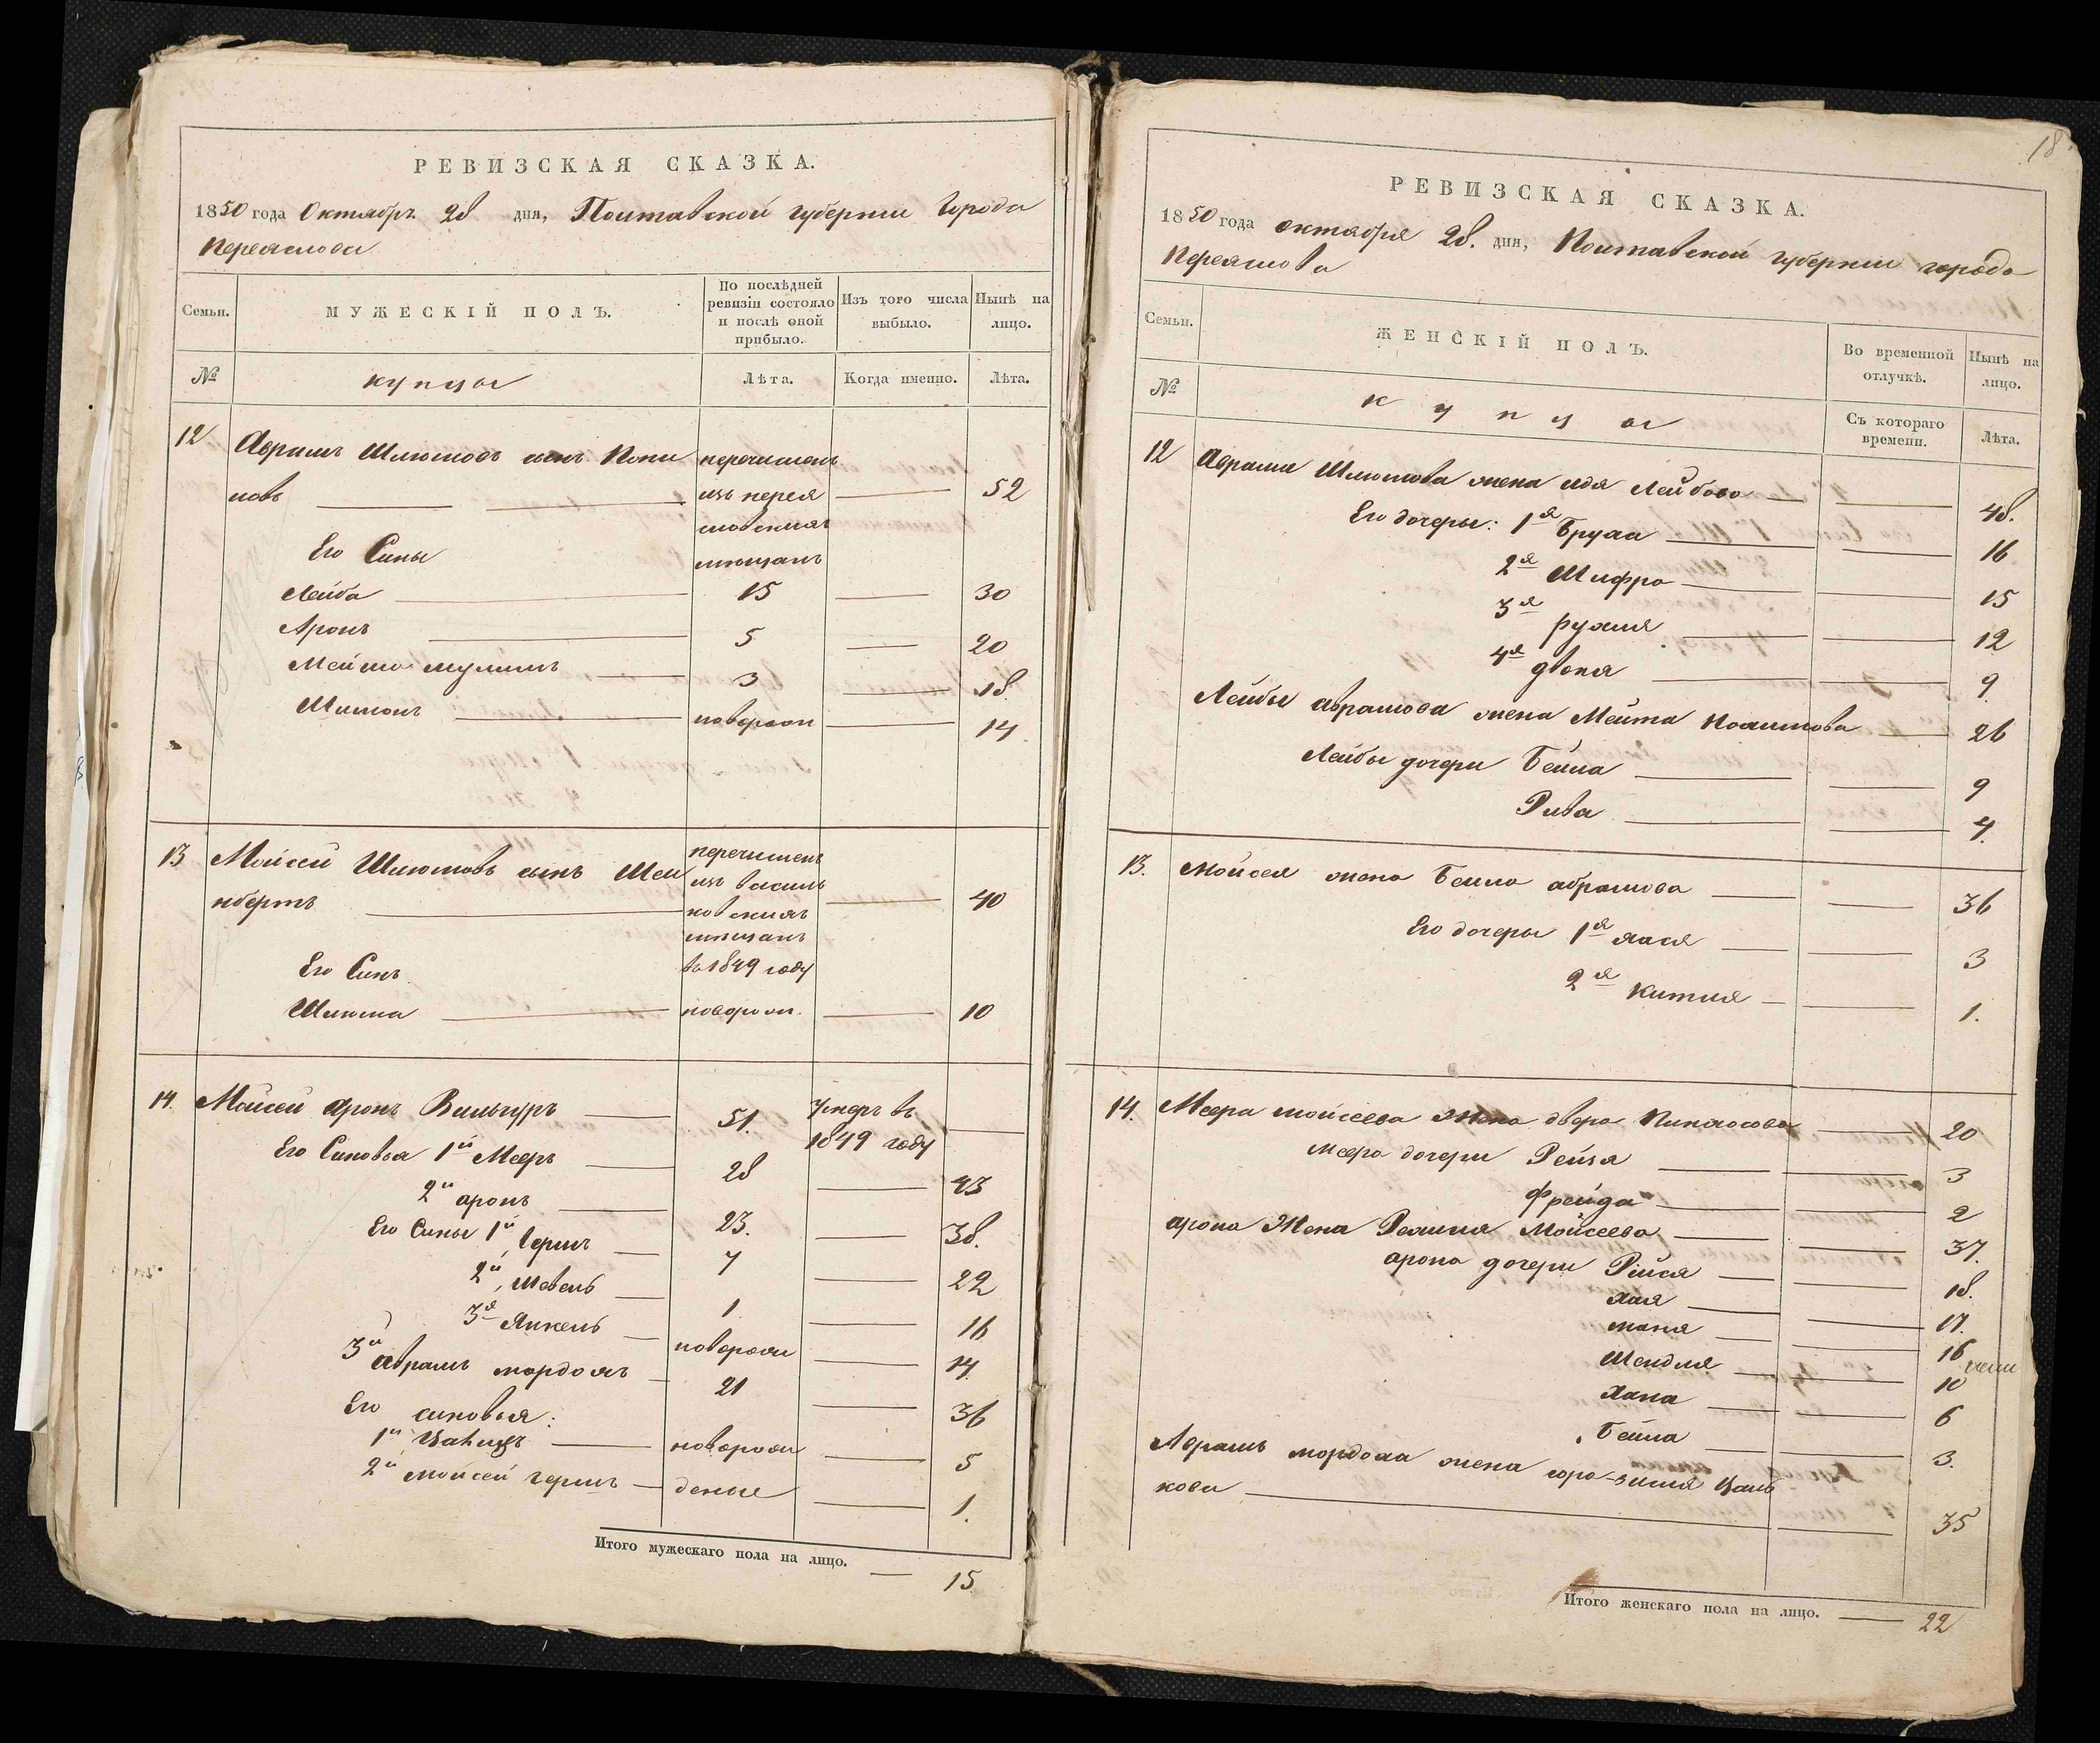 РЕВИЗСКАЯ СКАЗКА.
1850 года Октябрь 28 дня, Полтавской губернии города
Переяслова
Семьи.
МУЖЕСКІЙ ПОЛЪ.
По послѣдней ревизіи состояло и послѣ оной прибыло.
Изъ того числа выбыло.
Нынѣ на лицо.
№
купцы
Лѣта.
Когда именно.
Лѣта.
12 Аврамъ Шлиомовъ сынъ перечисленъ
новъ изъ перея 52
словскихъ
Его Сины мещанъ
Лейба 15 30
Аронъ 5 20
3 18.
Шимонъ новорож 14
13 Мойсей Шлиомовъ сынъ Шеи перечисленъ
нбергъ изъ василь 40
ковскихъ
мещанъ
Его Синъ въ 1849 году
Шлиома новорож. 10
14. Мойсей Аронъ Вильгуръ 51. Умеръ въ
1849 году
Его Синовья 1й Мееръ 28 43
2й аронъ 23. 38.
Его Сины 1й, Гершъ 7 22
2й, Шевель 1 16
3й Янкель новорож 14
3й аврамъ мордохъ 21 36
Его синовья:
1й новорож 5
2й мойсей гершъ деные 1.
Итого мужескаго пола на лицо. 15
18
РЕВИЗСКАЯ СКАЗКА.
1850 года октября 28. дня, Полтавской губернии города
Переяслова
Семьи.
ЖЕНСКІЙ ПОЛЪ.
Во временной отлучкѣ.
Нынѣ на лицо.
№
купцы
Съ котораго времени.
Лѣта.
12 Аврама Шлиомова жена Лейбова 48.
Его дочеры: 1я Бруха 16
2я Шифра 15
3я рухля 12
4я двоня 9.
Лейбы аврамова жена Мейта 26
Лейбы дочери Бейла 9
Рива 4.
13. Мойсея жена Бейла абрамова 36
Его дочеры 1я хася 3
2я 1.
14. Меера мойсеева Жена двера Пинхасова 20
Меера дочери Рейза 3
Фрейда 2
арона Жена Мойсеева 37.
арона дочери Рійся 18.
хая 17.
маня 16
Шендля 10
хана 6
Бейла 3.
Аврамъ мордоха жена
кова 35
Итого женскаго пола на лицо. 22